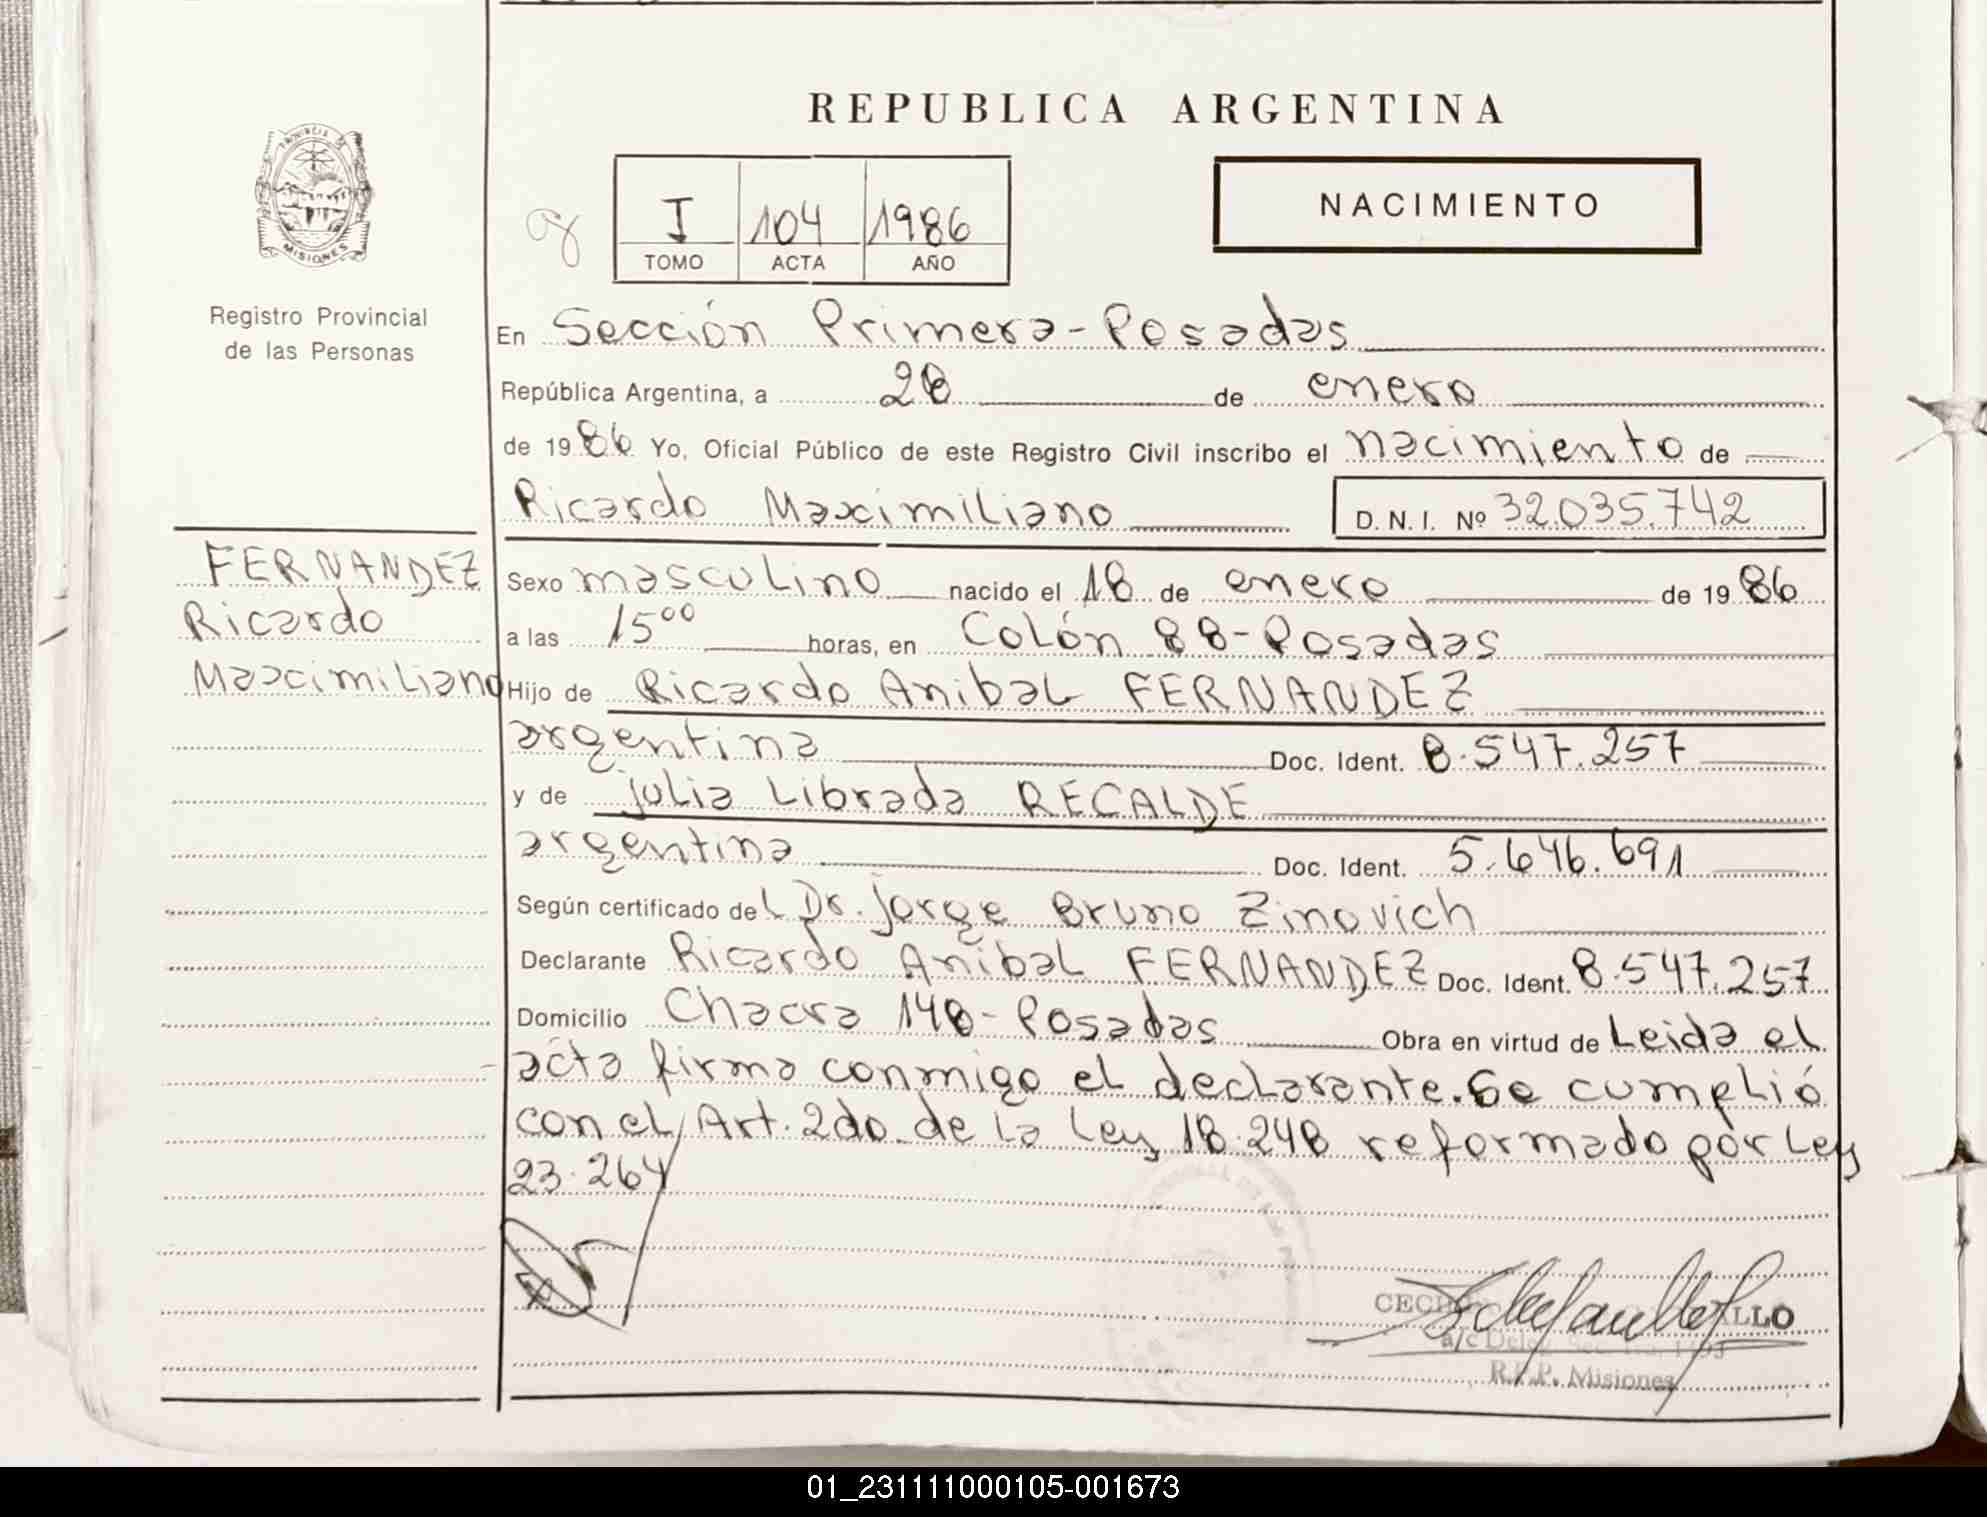 REPUBLICA ARGENTINA
PROVINCIA DE
MISIONES
Registro Provincial
de las Personas
I 104 1986
TOMO ACTA AÑO
NACIMIENTO
En Sección Primera - Posadas
República Argentina, a 28 de enero
de 1986 Yo, Oficial Público de este Registro Civil inscribo el nacimiento de
Ricardo Maximiliano D.N.I. Nº 32.035.742
FERNANDEZ
Ricardo
Maximiliano
Sexo masculino nacido el 18 de enero de 1986
a las 15⁰⁰ horas, en Colón 88 - Posadas
Hijo de Ricardo Anibal FERNANDEZ
argentina Doc. Ident. 8.547.257
y de Julia Librada RECALDE
argentina Doc. Ident. 5.646.691
Según certificado del Dr. Jorge Bruno Zinovich
Declarante Ricardo Anibal FERNANDEZ Doc. Ident. 8.547.257
Domicilio Chacra 148 - Posadas Obra en virtud de Leida el
acta firma conmigo el declarante. Se cumplió
con el Art. 2do. de la Ley 18.248 reformado por Ley
23.264
a/c
R.P.P. Misiones
01_231111000105-001673